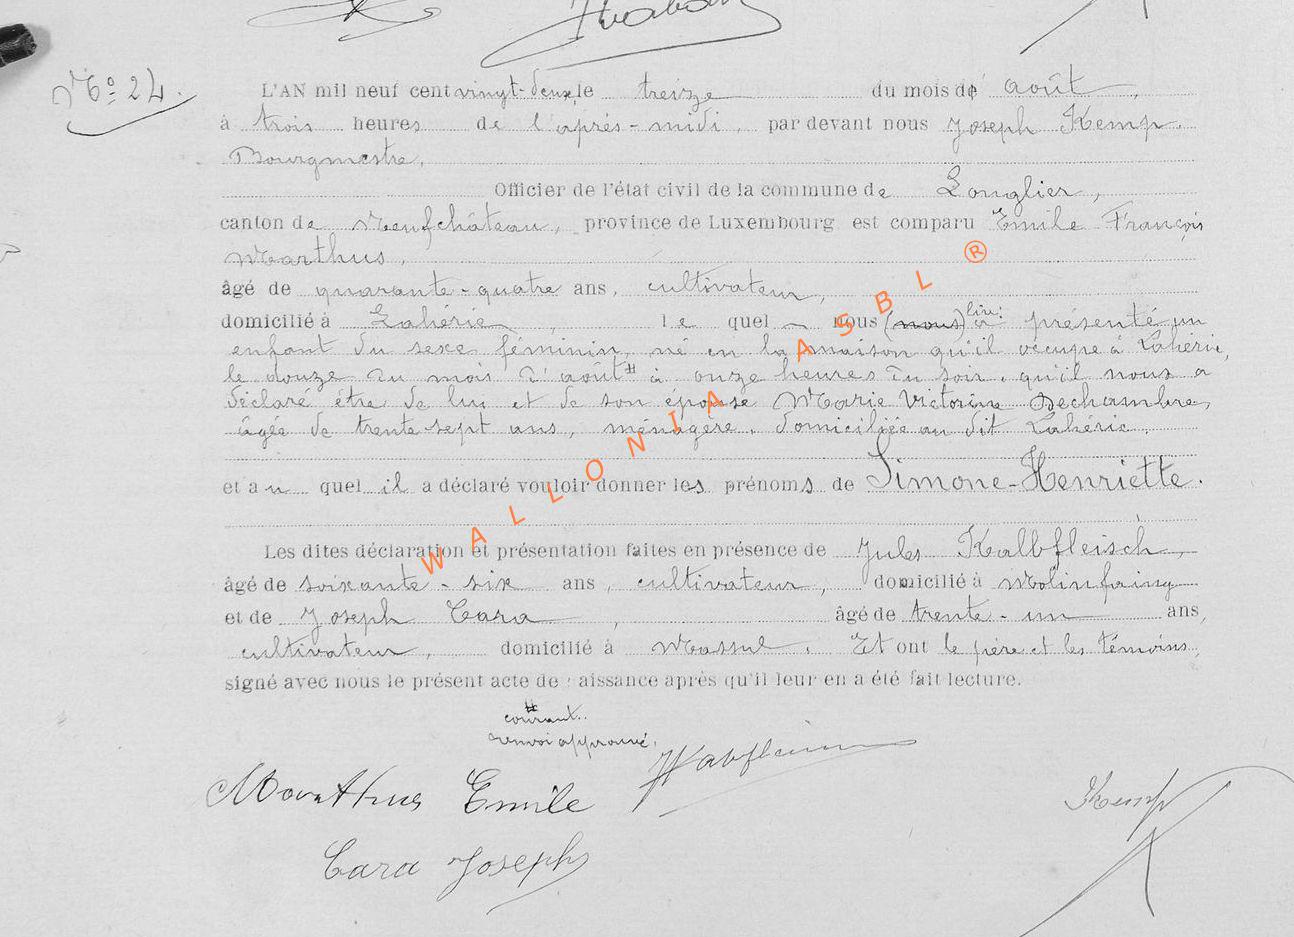 No 24.
L'AN mil neuf cent vingt-deux, le treize du mois de août,
à trois heures de l'après-midi, par devant nous Joseph Kemp.
Bourgmestre,
Officier de l'état civil de la commune de Longlier,
canton de Neufchâteau, province de Luxembourg est comparu Emile François
Marthus,
âgé de quarante-quatre ans, cultivateur,
domicilié à Lahérie, le quel nous (nous) lire: a présenté un
enfant du sexe féminin, né en la maison qu'il occupe à Lahérie,
le douze du mois d'août # à onze heures du soir, qu'il nous a
déclaré être de lui et de son épouse Marie Victorine Dechambre,
âgée de trente sept ans, ménagère, domiciliée au dit Lahérie.
et au quel il a déclaré vouloir donner les prénoms de Simone-Henriette.
Les dites déclaration et présentation faites en présence de Jules Kalbfleisch,
âgé de soixante-six ans, cultivateur, domicilié à Molinfaing
et de Joseph Cara, âgé de trente-un ans,
cultivateur, domicilié à Massul. Et ont le père et les témoins,
signé avec nous le présent acte de naissance après qu'il leur en a été fait lecture.
# courant.
renvoi approuvé.
Marthus Emile
Kemp
Cara Joseph
WALLONIA ASBL ®